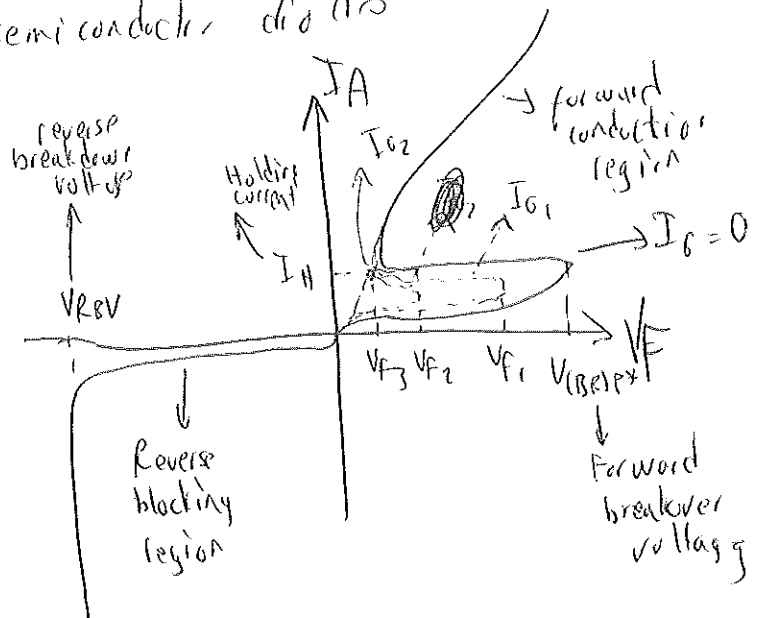 semiconductor diodes
IA
reverse
breakdown
voltage
Holding
current
IG2
forward
conduction
region
IG1
IG = 0
IH
VRBV
VF3 VF2 VF1 V(BR)F* VF
Reverse
blocking
region
Forward
breakover
voltagg